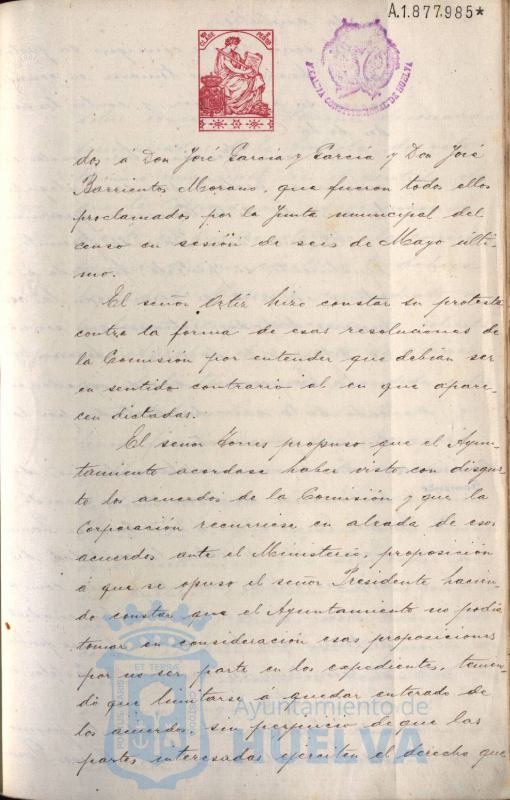 A.1.877.985*
dos á Don José García y García y Don José
Barrientos Morano, que fueron todos ellos
proclamados por la Junta municipal del
censo en sesión de seis de Mayo últi-
mo.
El señor Ortiz hizo constar su protesta
contra la forma de esas resoluciones de
la Comisión por entender que debían ser
en sentido contrario al en que apare-
cen dictadas.
El señor Torres propuso que el Ayun-
tamiento acordase haber visto con disgus-
to los acuerdos de la Comisión y que la
Corporación recurriese en alzada de esos
acuerdos ante el Ministerio, proposición
á que se opuso el señor Presidente hacien-
do constar que el Ayuntamiento no podía
tomar en consideración esas proposiciones
por no ser parte en los expedientes, tenien-
do que limitarse á quedar enterado de
los acuerdos, sin perjuicio de que las
partes interesadas ejerciten el derecho que
Ayuntamiento de
HUELVA